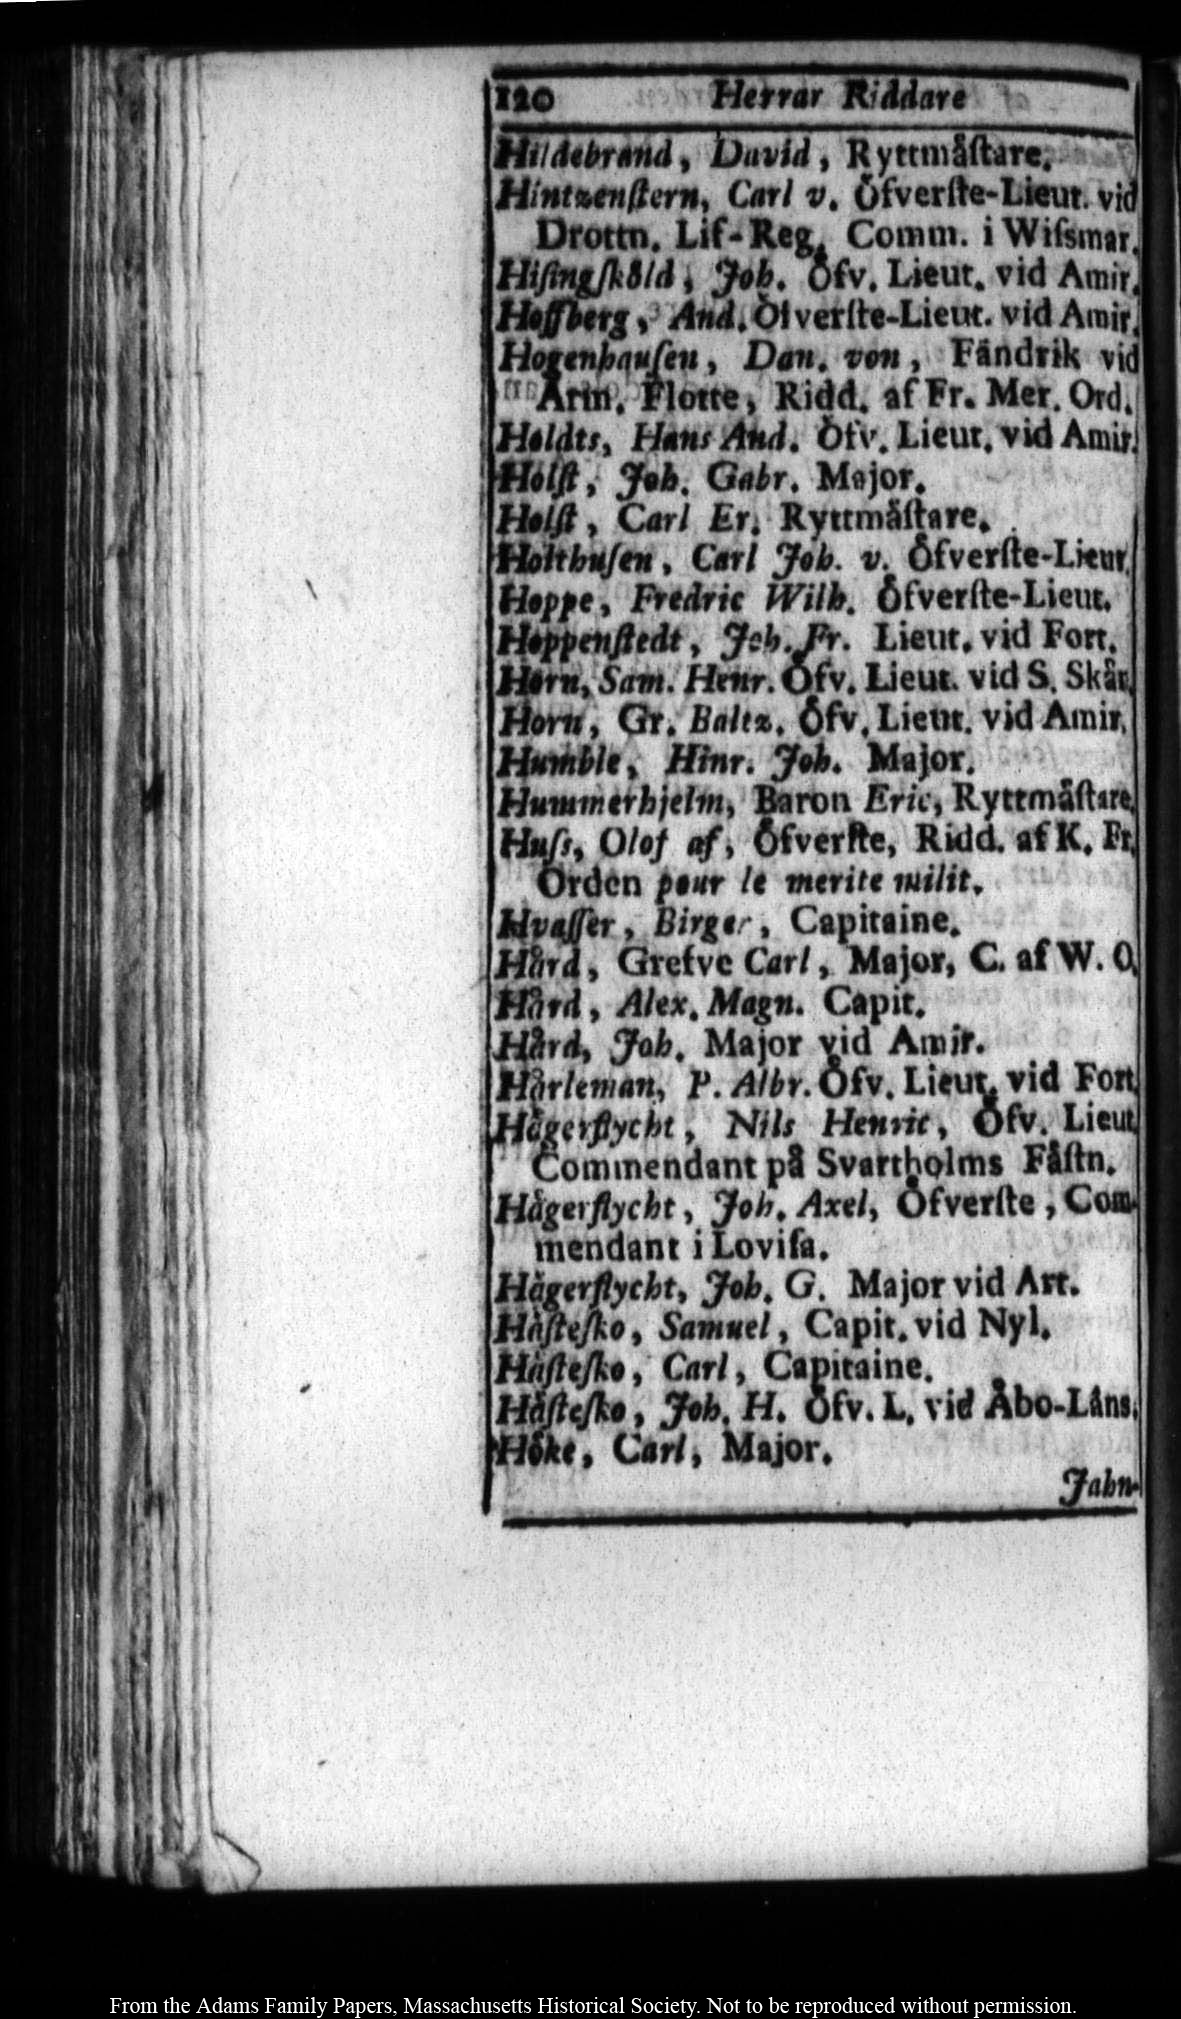 120 Herrar Riddare
Hildebrand, David, Ryttmåſtare.
Hintzenſtern, Carl v. Öfverſte-Lieut. vid
Drottn. Lif-Reg. Comm. i Wiſsmar.
Hiſingſköld, Joh. Öfv. Lieut. vid Amir.
Hoffberg, And. Öfverſte-Lieut. vid Amir.
Hogenhauſen, Dan. von, Fändrik vid
Arm. Flotte, Ridd. af Fr. Mer. Ord.
Holdts, Hans And. Öfv. Lieut. vid Amir.
Holſt, Joh. Gabr. Major.
Holſt, Carl Er. Ryttmåſtare.
Holthuſen, Carl Joh. v. Öfverſte-Lieut.
Hoppe, Fredric Wilh. Öfverſte-Lieut.
Hoppenſtedt, Joh. Fr. Lieut. vid Fort.
Horn, Sam. Henr. Öfv. Lieut. vid S. Skår.
Horn, Gr. Baltz. Öfv. Lieut. vid Amir.
Humble, Hinr. Joh. Major.
Hummerhjelm, Baron Eric, Ryttmåſtare.
Huſs, Olof af, Öfverſte, Ridd. af K. Fr.
Orden pour le merite milit.
Hvaſſer, Birger, Capitaine.
Hård, Grefve Carl, Major, C. af W. O.
Hård, Alex. Magn. Capit.
Hård, Joh. Major vid Amir.
Hårleman, P. Albr. Öfv. Lieut. vid Fort.
Hågerflycht, Nils Henric, Öfv. Lieut.
Commendant på Svartholms Fåſtn.
Hågerflycht, Joh. Axel, Öfverſte, Com-
mendant i Loviſa.
Hågerflycht, Joh. G. Major vid Art.
Håſteſko, Samuel, Capit. vid Nyl.
Håſteſko, Carl, Capitaine.
Håſteſko, Joh. H. Öfv. L. vid Åbo-Låns.
Höke, Carl, Major.
Jahn-
From the Adams Family Papers, Massachusetts Historical Society. Not to be reproduced without permission.